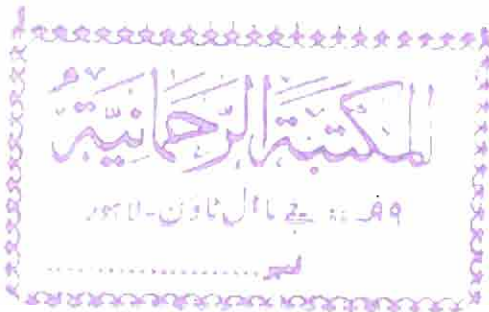 المكتبة الرحمانية
۹۹ ... جے ماڈل ٹاؤن - لاہور
نمبر ......................